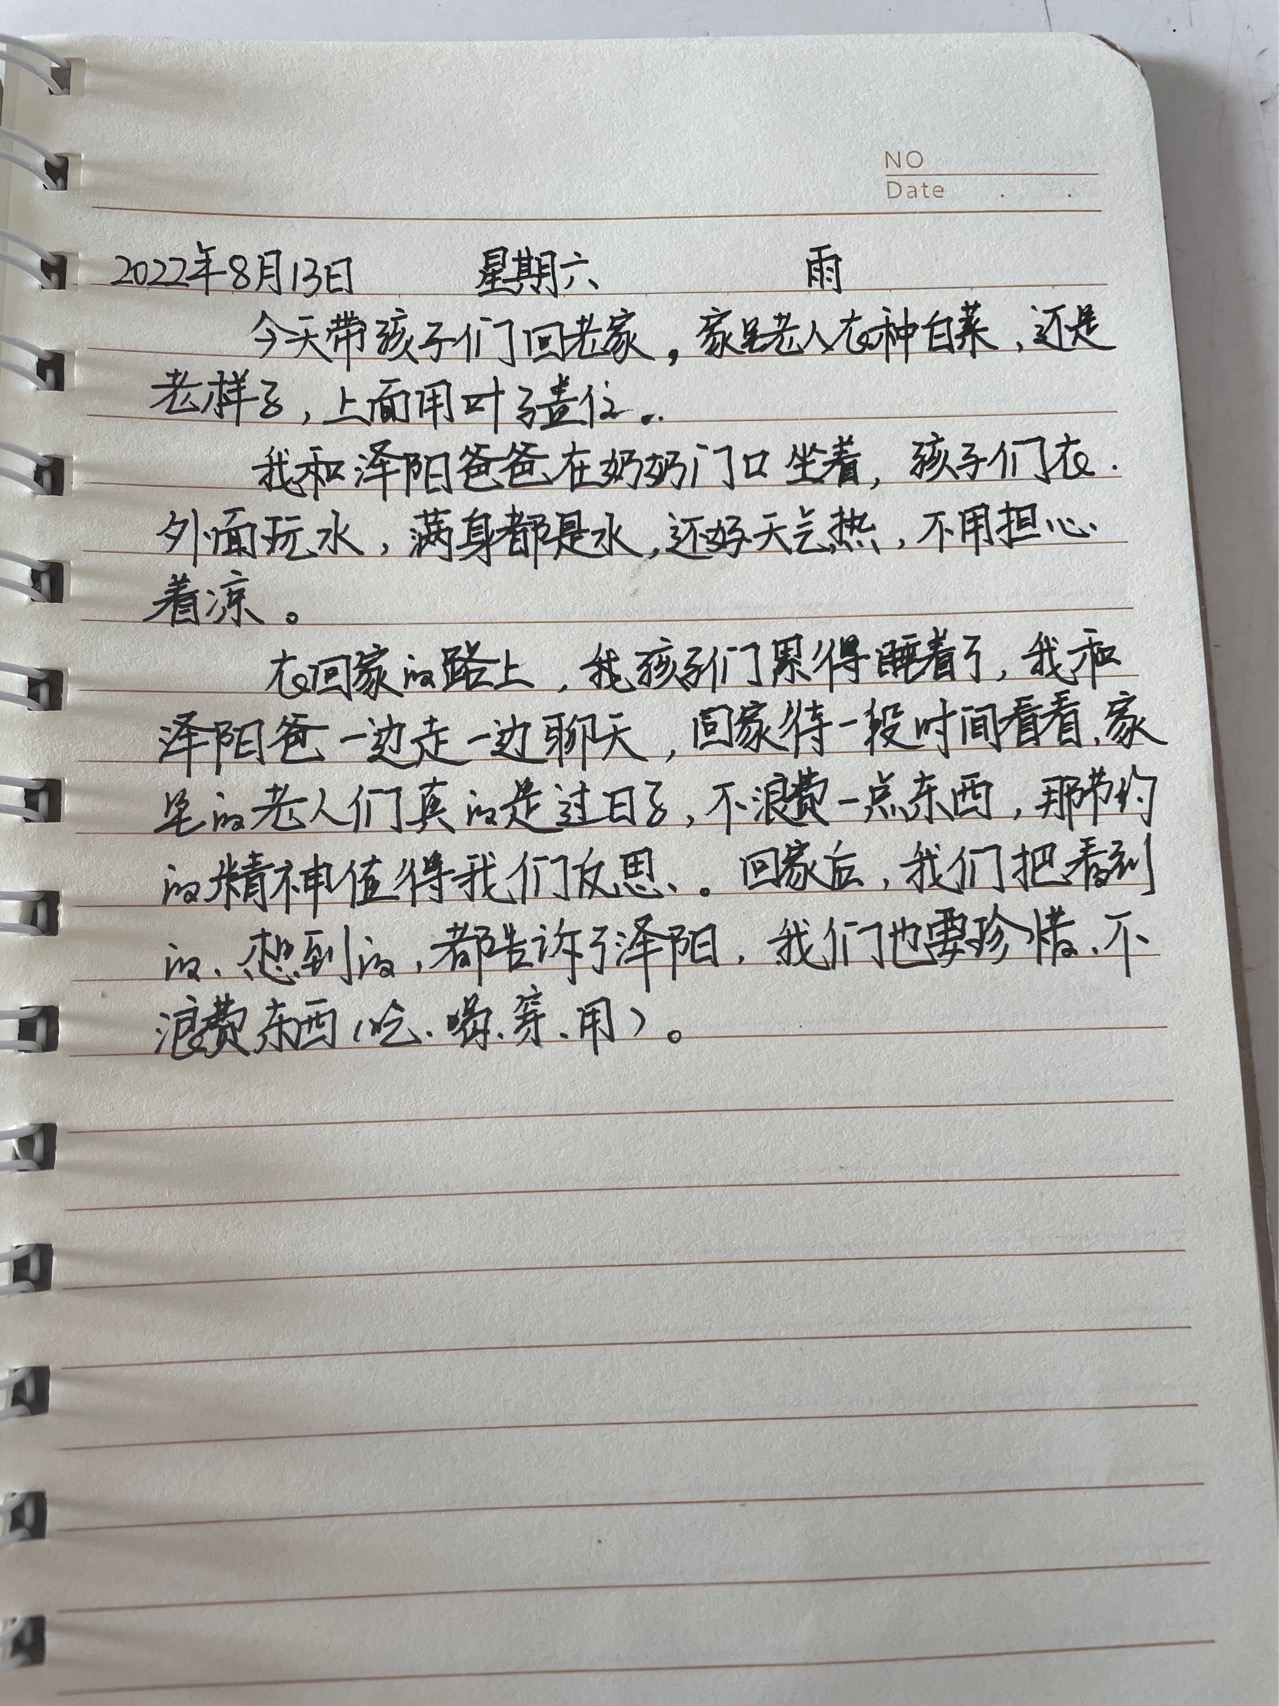 NO
Date . .
2022年8月13日 星期六 雨
今天带孩子们回老家，家里老人在种白菜，还是
老样子，上面用叶子盖住。
我和泽阳爸爸在奶奶门口坐着，孩子们在
外面玩水，满身都是水，还好天气热，不用担心
着凉。
在回家的路上，我孩子们累得睡着了，我和
泽阳爸一边走一边聊天，回家待一段时间看看、家
里的老人们真的是过日子，不浪费一点东西，那节约
的精神值得我们反思、。回家后，我们把看到
的、想到的，都告诉了泽阳，我们也要珍惜、不
浪费东西（吃、喝、穿、用）。